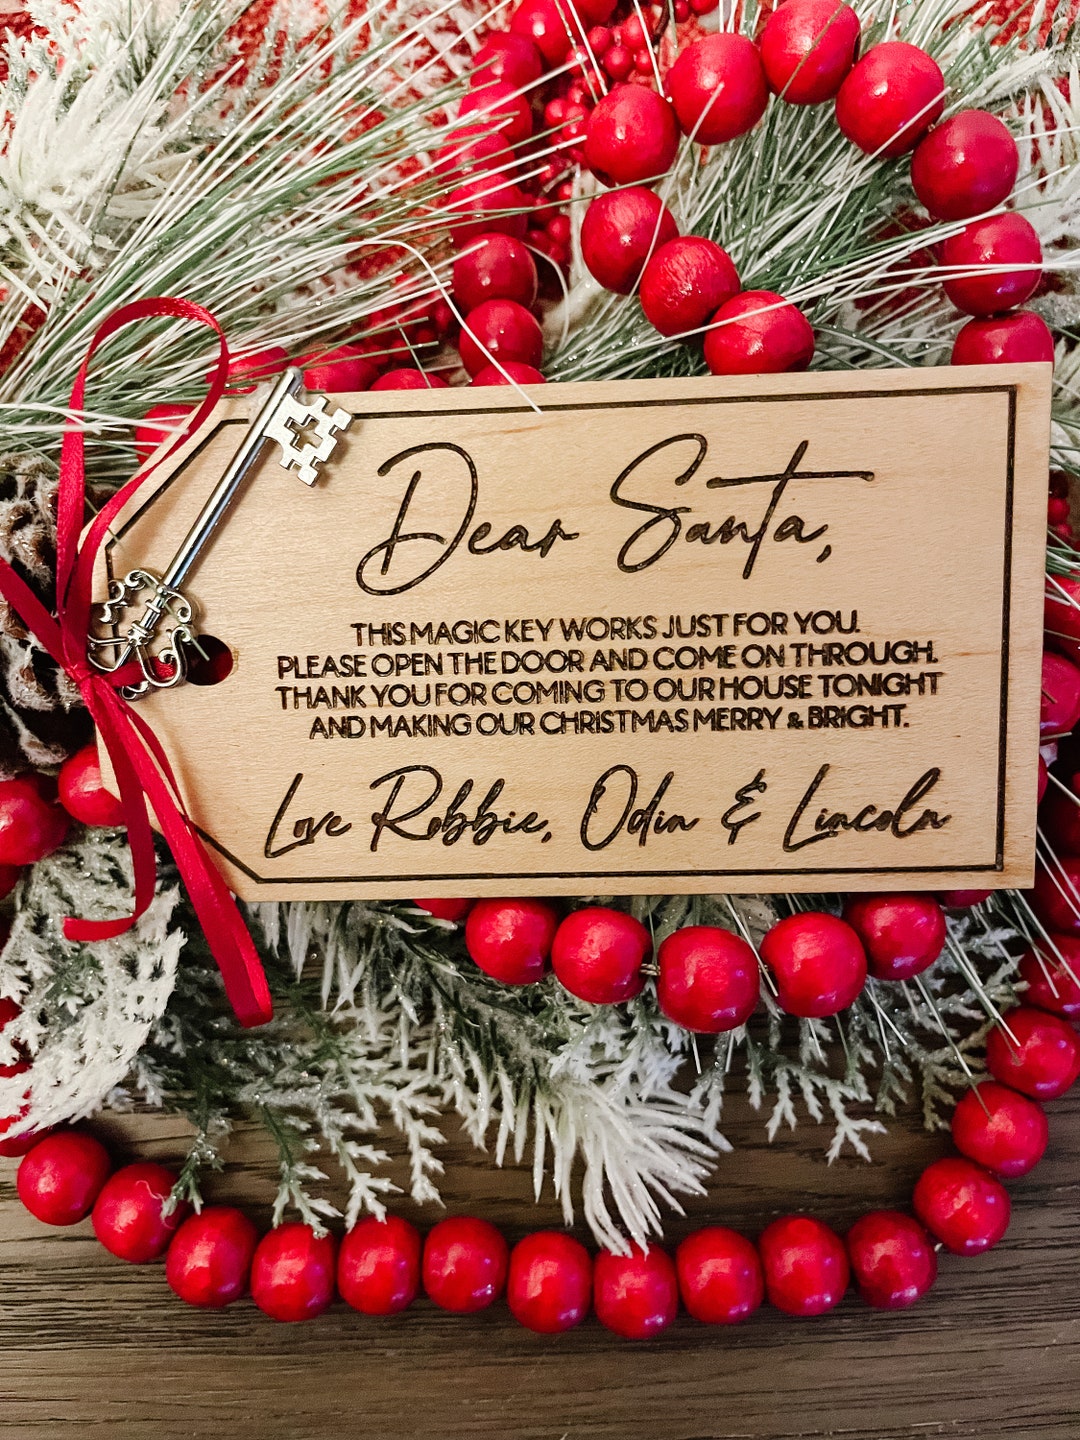 Dear Santa,
THIS MAGIC KEY WORKS JUST FOR YOU.
PLEASE OPEN THE DOOR AND COME ON THROUGH.
THANK YOU FOR COMING TO OUR HOUSE TONIGHT
AND MAKING OUR CHRISTMAS MERRY & BRIGHT.
Love Robbie, Odin & Lincoln